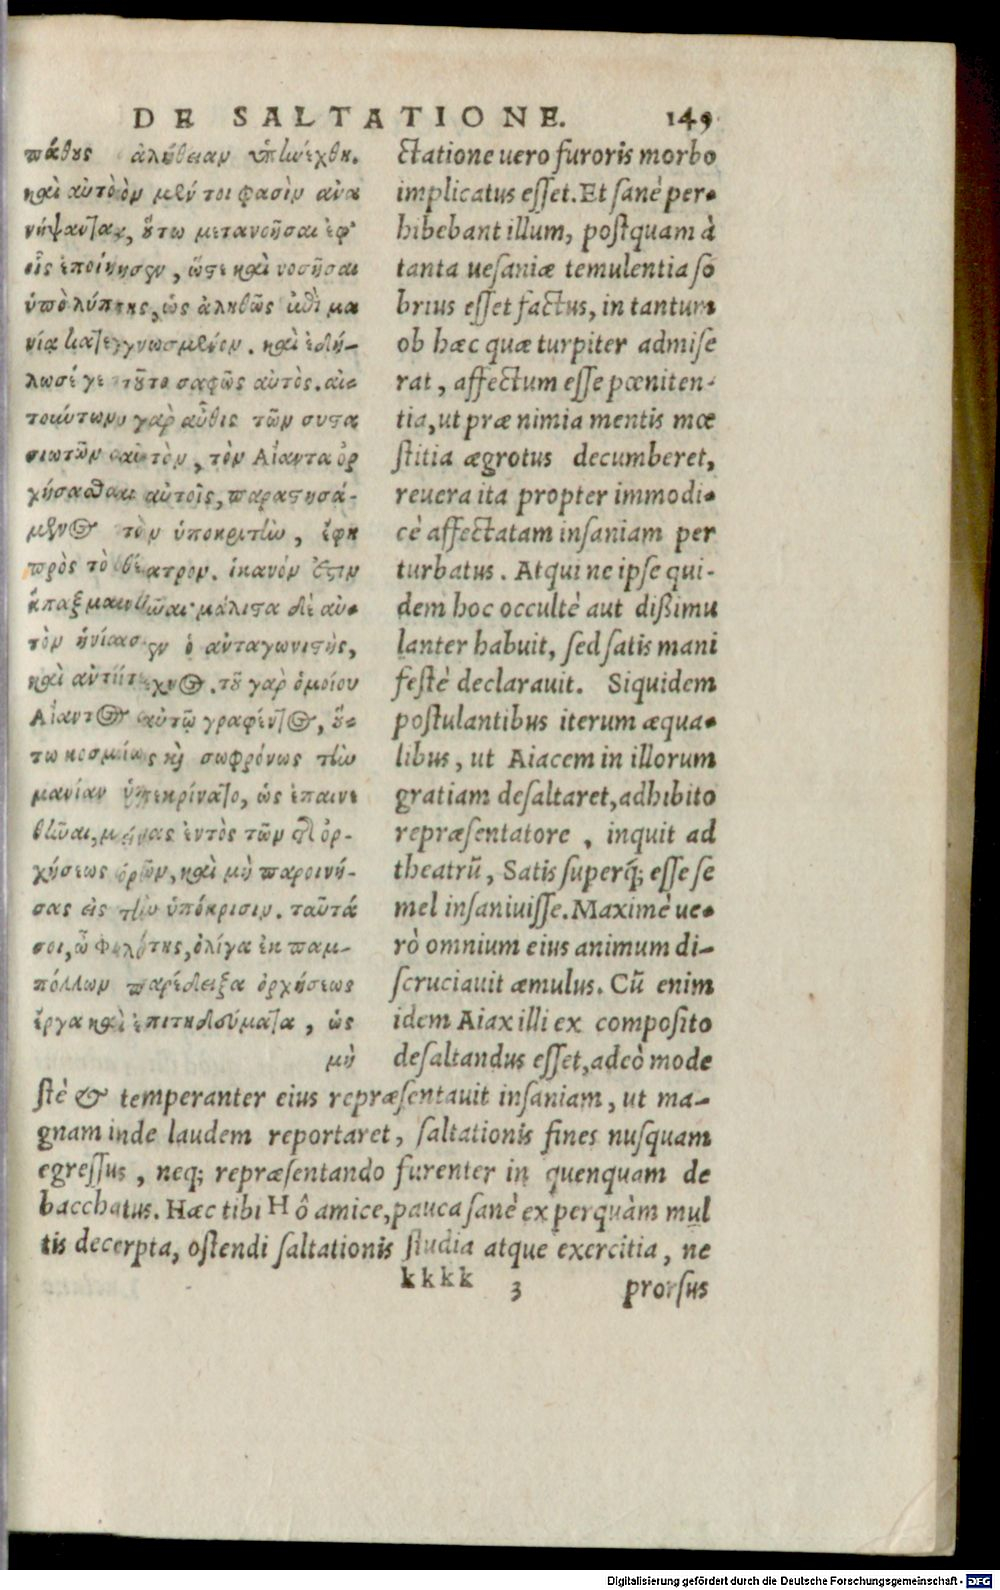 DE SALTATIONE. 149
πάθους ἀλήθειαν ὑπηνέχθη.
καὶ αὐτὸον μέν τοι φασὶν ἀνα
νήψαντας, οὕτω μετανοῆσαι ἐφ'
οἷς ἐποίησεν, ὥστε καὶ νοσῆσαι
ὑπὸ λύπης, ὡς ἀληθῶς ἐπὶ μα
νίᾳ κατεγνωσμένον. καὶ ἐδή-
λωσέ γε τοῦτο σαφῶς αὐτὸς. αἰ-
τούντων γὰρ αὖθις τῶν συστα
σιωτῶν αὐτὸν, τὸν Αἴαντα ὀρ
χήσασθαι αὐτοῖς, παραστησά-
μενος τὸν ὑποκριτὴν, ἔφη
πρὸς τὸ θέατρον. ἱκανόν ἐστιν
ἅπαξ μανῆναι· μάλιστα δὲ αὐ-
τὸν ἠνίασεν ὁ ἀνταγωνιστὴς,
καὶ ἀντίτεχνος. τοῦ γὰρ ὁμοίου
Αἴαντος αὐτῷ γραφέντος, οὕ-
τω κοσμίως καὶ σωφρόνως τὴν
μανίαν ὑπεκρίνατο, ὡς ἐπαινε
θῆναι, μείνας ἐντὸς τῶν τῆς ὀρ-
χήσεως ὅρων, καὶ μὴ παροινή-
σας εἰς τὴν ὑπόκρισιν. ταῦτά
σοι, ὦ φιλότης, ὀλίγα ἐκ παμ-
πόλλων παρέδειξα ὀρχήσεως
ἔργα καὶ ἐπιτηδεύματα, ὡς
μὴ
ctatione uero furoris morbo
implicatus esset. Et sanè per-
hibebant illum, postquam à
tanta uesaniæ temulentia so
brius esset factus, in tantum
ob hæc quæ turpiter admise
rat, affectum esse pœniten-
tia, ut præ nimia mentis mœ
stitia ægrotus decumberet,
reuera ita propter immodi-
cè affectatam insaniam per
turbatus. Atqui ne ipse qui-
dem hoc occultè aut dißimu
lanter habuit, sed satis mani
festè declarauit. Siquidem
postulantibus iterum æqua-
libus, ut Aiacem in illorum
gratiam desaltaret, adhibito
repræsentatore, inquit ad
theatrũ, Satis superq; esse se
mel insaniuisse. Maximè ue-
rò omnium eius animum di-
scruciauit æmulus. Cũ enim
idem Aiax illi ex composito
desaltandus esset, adeò mode
stè & temperanter eius repræsentauit insaniam, ut ma-
gnam inde laudem reportaret, saltationis fines nusquam
egressus, neq; repræsentando furenter in quenquam de
bacchatus. Hæc tibi H ô amice, pauca sanè ex perquàm mul
tis decerpta, ostendi saltationis studia atque exercitia, ne
kkkk 3 prorsus
Digitalisierung gefördert durch die Deutsche Forschungsgemeinschaft - DFG